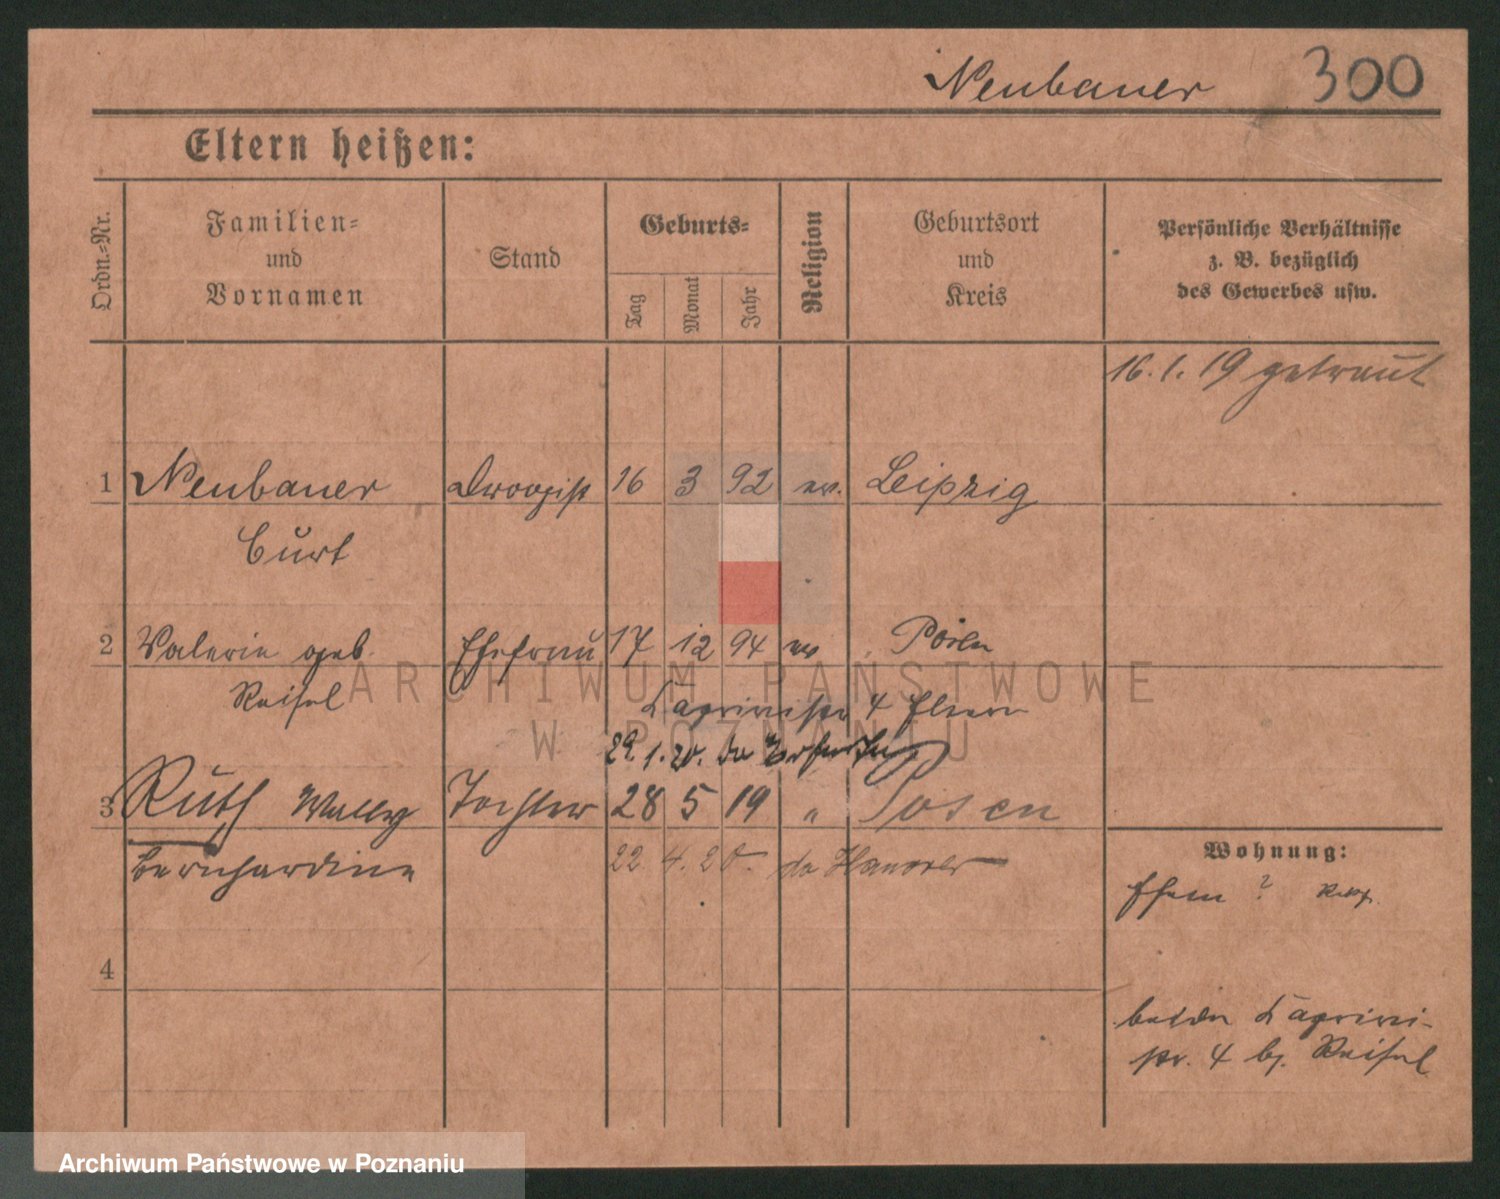 Neubauer 300
Eltern heißen:
Ordn.-Nr.
Familien-
und
Vornamen
Stand
Geburts-
Tag
Monat
Jahr
Religion
Geburtsort
und
Kreis
Persönliche Verhältnisse
z. B. bezüglich
des Gewerbes usw.
16. 1. 19 getraut
1 Neubauer Drogist 16 3 92 ev. Leipzig
Curt
2 Valerie geb. Ehefrau 17 12 94 ev Posen
Reisel
4 Eltern
29. 1. 20.
3 Ruth Wally Tochter 28 5 19 " Posen
Bernhardine 22. 4. 20.
Wohnung:
Ehem ?
4
beiden Caprivi-
str. 4 bj. Reisel
ARCHIWUM PAŃSTWOWE
W POZNANIU
Archiwum Państwowe w Poznaniu